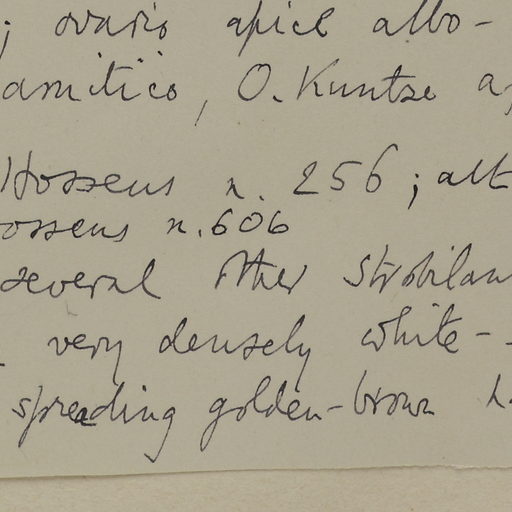 ; ovario apice albo-
amitico, O. Kuntze
Hosseus n. 256; alt
osseus n. 606
several other Strobilan
very densely white-
spreading golden-brown h